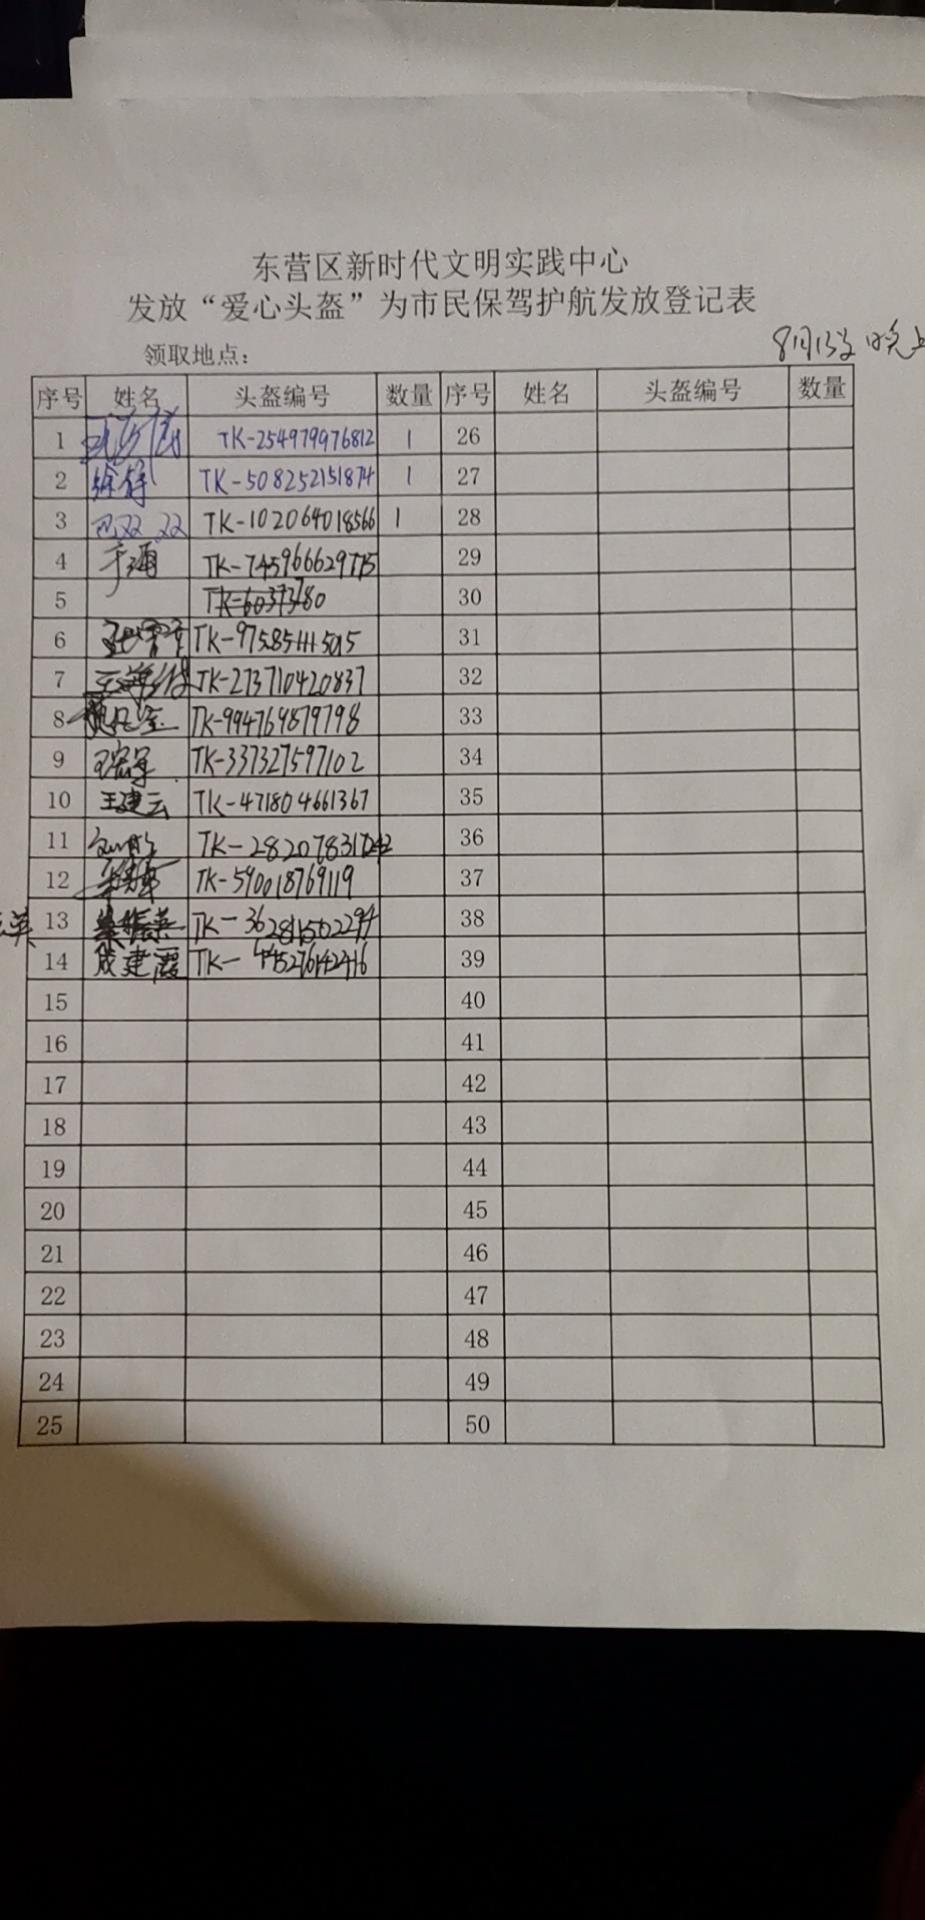 东营区新时代文明实践中心
发放“爱心头盔”为市民保驾护航发放登记表
领取地点：
8月13 晚上
序号 姓名 头盔编号 数量 序号 姓名 头盔编号 数量
1 TK-254979976812 1 26
2 徐静 TK-508252151874 1 27
3 巴双双 TK-102064018566 1 28
4 于海 TK-745966629775 29
5 30
6 TK-975854115015 31
7 TK-273710420837 32
8 TK-994769879798 33
9 TK-337327597102 34
10 王建云 TK-471804661367 35
11 36
12 TK-590018769119 37
13 TK-362811502294 38
14 成建霞 TK-445276142416 39
15 40
16 41
17 42
18 43
19 44
20 45
21 46
22 47
23 48
24 49
25 50